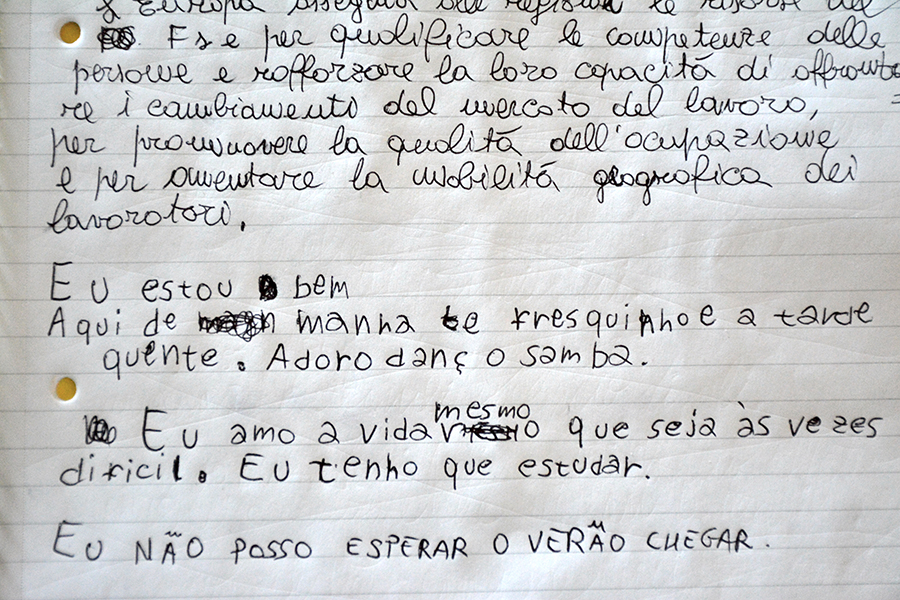 Europa assegna alle regioni le risorse del
Fse per qualificare le competenze delle
persone e rafforzare la loro capacità di affronta
re i cambiamenti del mercato del lavoro,
per promuovere la qualità dell'ocupazione
e per aumentare la mobilità geografica dei
lavoratori.
Eu estou bem
Aqui de manha te fresquinho e a tarde
quente. Adoro danç o samba.
mesmo
Eu amo a vida que seja às vezes
dificil. Eu tenho que estudar.
EU NÃO POSSO ESPERAR O VERÃO CHEGAR.